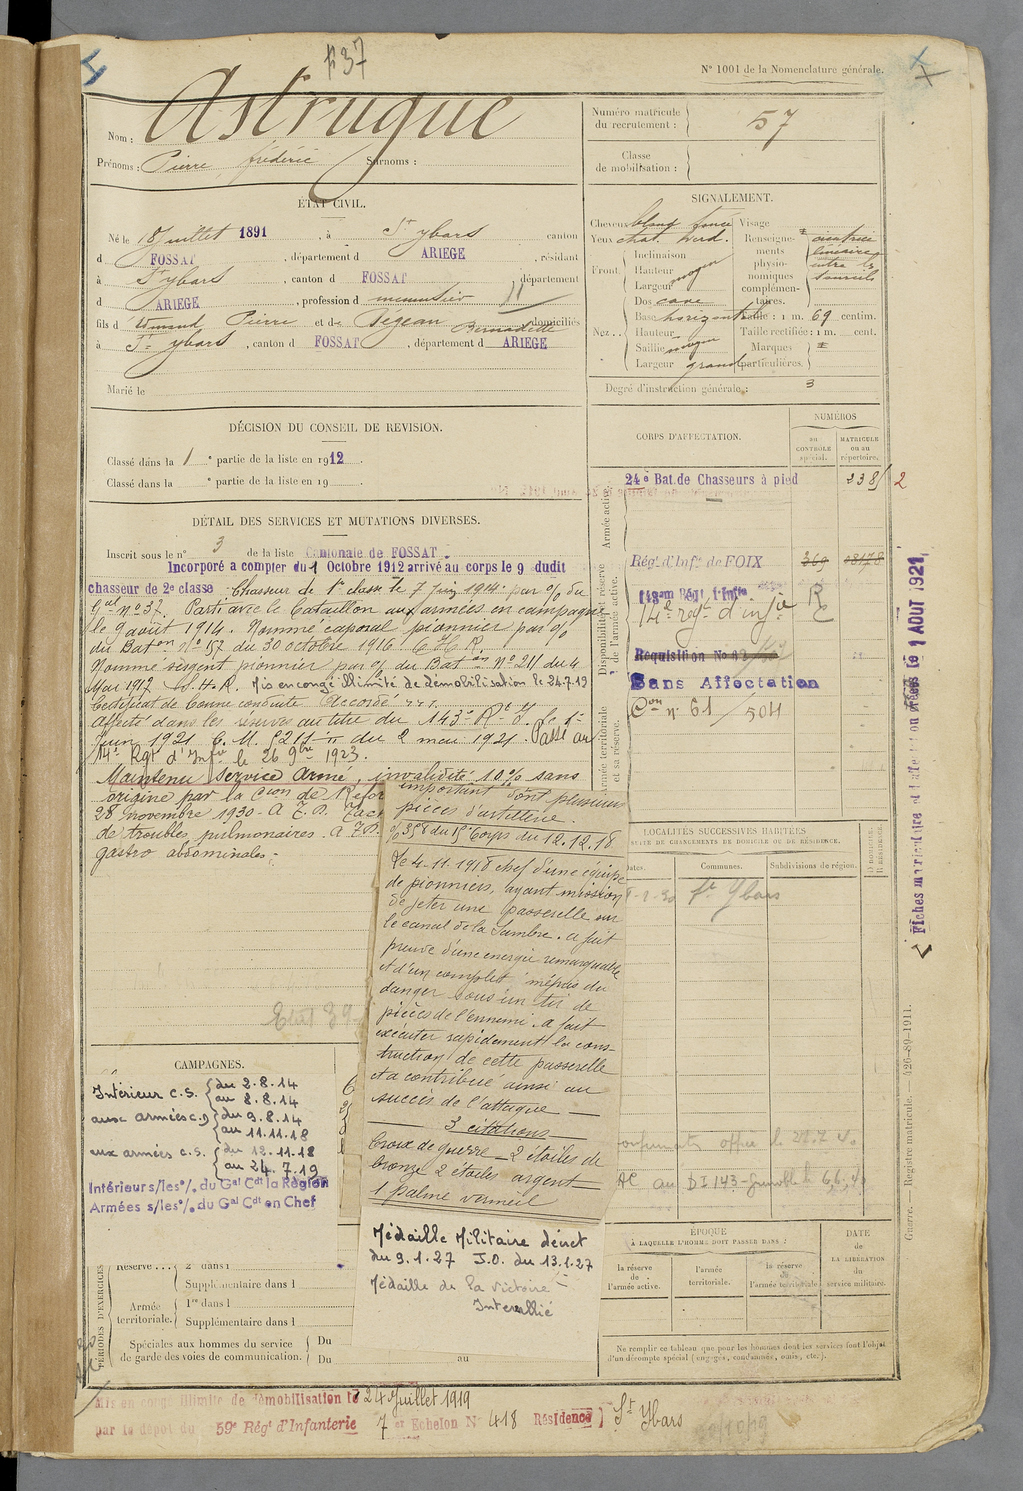 F37
N° 1001 de la Nomenclature générale.
Nom : Astrugue
Prénoms : Pierre, frédéric Surnoms :
Numéro matricule du recrutement : 57
Classe de mobilisation :
ÉTAT CIVIL.
Né le 18 Juillet 1891, à St ybars canton
d FOSSAT, département d ARIEGE, résidant
à St ybars, canton d FOSSAT département
d ARIEGE, profession d menuisier
fils d' Pierre et de Pegean Bernadette domiciliés
à St ybars, canton d FOSSAT, département d ARIEGE
Marié le
SIGNALEMENT.
Cheveux blond foncé Visage
Yeux chat. verd. Renseignements physionomiques complémentaires. cicatrice linéaire entre les sourcils
Front Inclinaison
Hauteur moyen
Largeur
Nez Dos cave
Base horizontale Taille : 1 m. 69 centim.
Hauteur Taille rectifiée : 1 m. cent.
Saillie moyen Marques particulières.
Largeur grand
Degré d'instruction générale : 3
DÉCISION DU CONSEIL DE REVISION.
Classé dans la 1e partie de la liste en 1912
Classé dans la e partie de la liste en 19
CORPS D'AFFECTATION.
NUMÉROS
au CONTROLE spécial.
MATRICULE ou au répertoire.
Armée active.
24e Bat. de Chasseurs à pied 2385 2
Disponibilité et réserve de l'armée active.
Régt d'Infie de FOIX 369
143am Régt d'Infie
14e regt d'infie R
Requisition No
Sans Affectation
Con n° 61 / 504
Armée territoriale et sa réserve.
DÉTAIL DES SERVICES ET MUTATIONS DIVERSES.
Inscrit sous le n° 3 de la liste Cantonale de FOSSAT.
Incorporé a compter du 1 Octobre 1912 arrivé au corps le 9 dudit
chasseur de 2e classe. Chasseur de 1e classe le 7 Juin 1914 par % du
n° 37. Parti avec le bataillon aux armées en campagne
le 9 août 1914. Nommé caporal pionnier par %
du Baton n° 157 du 30 octobre 1916. C.H.R.
Nommé sergent pionnier par % du Baton N° 211 du 4
Mai 1917 C.H.R. Mis en congé illimité de démobilisation le 24.7.19
Certificat de bonne conduite Accordé
Affecté dans les réserves au titre du 143e R.I. le 1er
Juin 1921 C.M. 5211 du 2 mai 1921. Passé au
14e Rgt d'Infie le 26 9bre 1923.
Maintenu Service Armé, invalidité 10% sans
origine par la Con de Réfor
28 novembre 1930
de troubles pulmonaires
gastro abdominales.
importants dont plusieurs
pièces d'artillerie.
358 du 15e Corps du 12.12.18
Le 4-11-1918 chef d'une équipe
de pionniers, ayant mission
de jeter une passerelle sur
le canal de la Sambre. a fait
preuve d'une energie remarquable
et d'un complet mépris du
danger sous un tir de
pièces de l'ennemi. a fait
exécuter rapidement la cons-
truction de cette passerelle
et a contribué ainsi au
succès de l'attaque
3 citations
Croix de guerre - 2 étoiles de
bronze 2 étoiles argent
1 palme vermeil
Médaille Militaire décret
du 9.1.27 J.O. du 13.1.27
Médaille de la victoire
Interallié
CAMPAGNES.
Intérieur C.S. du 2.8.14
au 8.8.14
aux armées C.D du 9.8.14
au 11.11.18
aux armées C.S. du 12.11.18
au 24.7.19
Intérieur s/les % du Gal Cdt la Région
Armées s/les % du Gal Cdt en Chef
PÉRIODES D'EXERCICES
Réserve 2e dans l
Supplémentaire dans l
Armée territoriale. 1re dans l
Supplémentaire dans l
Spéciales aux hommes du service de garde des voies de communication. Du
Du au
LOCALITÉS SUCCESSIVES HABITÉES
SUITE DE CHANGEMENTS DE DOMICILE OU DE RÉSIDENCE.
Dates. Communes. Subdivisions de région.
D DOMICILE. R RÉSIDENCE.
St Ybars
au DI 143 - Grenoble le 6.6.40
ÉPOQUE
À LAQUELLE L'HOMME DOIT PASSER DANS :
la réserve de l'armée active.
l'armée territoriale.
la réserve de l'armée territoriale.
DATE de LA LIBÉRATION du service militaire.
Ne remplir ce tableau que pour les hommes dont les services font l'objet
d'un décompte spécial (engagés, condamnés, omis, etc.).
Fiches matricule et d'affectation créées le 1 AOUT 1921
Guerre. — Registre matricule. — 426-89-1911.
Mis en congé illimité de démobilisation le 24 Juillet 1919
par le dépôt du 59e Régt d'Infanterie 7e Echelon N° 418 Résidence St Ybars